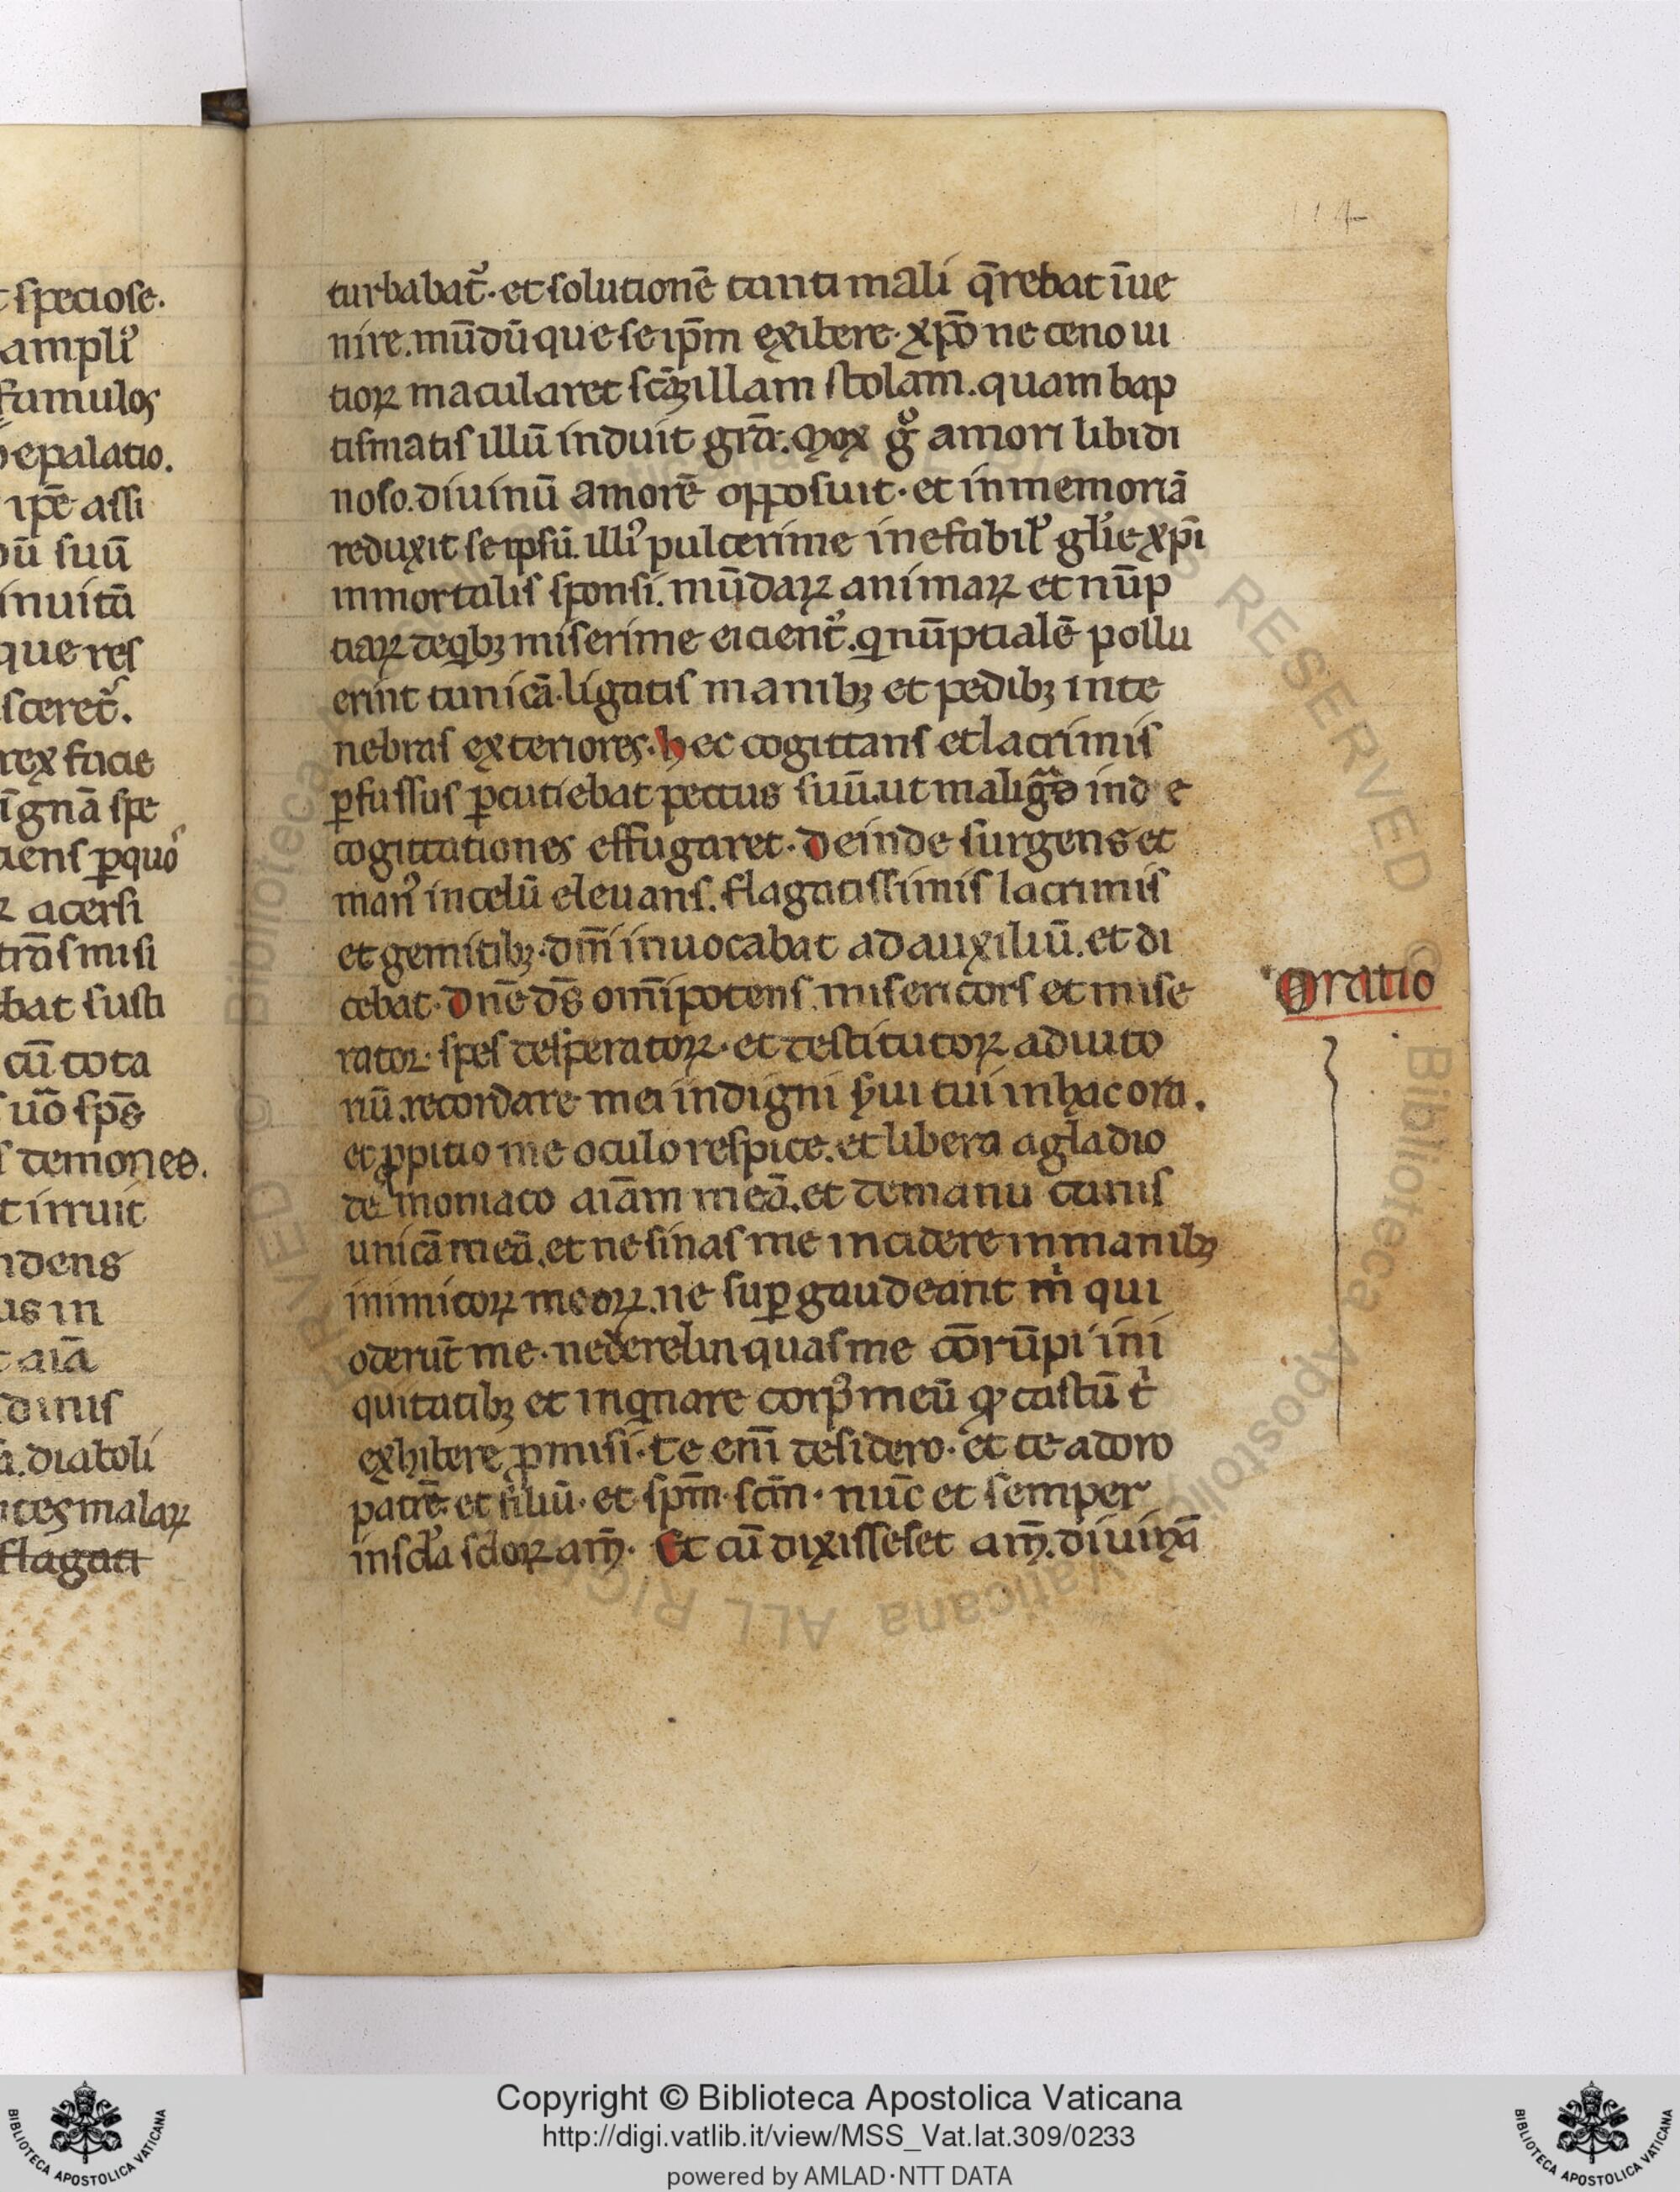 114
t speciose.
ampli᾽
famulos
epalatio.
ipē assi
ū suū
inuitā
que res
scereť.
rex facie
īgnā spe
aens ꝑquo
acersi
trāsmisi
bat susti
cū tota
uō sps̄
demones.
t irruit
ndens
us in
t aiā
dinis
. diaboli
tes malaꝝ
flagati
turbabat᾽. et solutionē tanti mali q̄rebat īue
nire. mūdūque se ip̄m exibere. xp̄o ne ceno ui
tioꝝ macularet sc̄āꝫ illam stolam. quam bap
tismatis illū induit gr̄a. Mox gͦ amori libidi
noso. diuinū amorē opposuit. et in memoriā
reduxit se ipsū. illi᾽ pulcerime inefabil᾽ gl᾽ie xp̄i
inmortalis sponsi. mūdaꝝ animaꝝ et nūp
tiaꝝ de qͥbꝫ miserime eicient᾽. qͥ nūptialē pollu
erint tunicā. ligatis manibꝫ et pedibꝫ in te
nebras exteriores. hec cogittans et lacrimis
ꝑfussus ꝑcutiebat pectus suū. ut malignas inde
cogittationes effugaret. deinde surgens et
man᾽ in celū eleuans. flagatissimis lacrimis
et gemitibꝫ. dm̄ inuocabat ad auxiliū. et di
cebat. Dn̄e ds̄ om̄ipotens misericors et mise
rator. spes desperatoꝝ. et destitutoꝝ adiuto
riū. recordare mei indigni s᾽ui tui in hac ora.
et ꝓpitio me oculo respice. et libera a gladio
demoniaco aīam meā. et de manu canis
unicā meā. et ne sinas me incidere in manibꝫ
inimicoꝝ meoꝝ. ne suꝑgaudeant m̍ qui
oderūt me. ne derelinquas me cōrūpi ini
quitatibꝫ et inqͥnare corp᾽ meū qͩ castū t̍
exhibere ꝓmisi. te eni᾽ desidero. et te adoro
patrē. et filiū. et sp̄m. sc̄m. nūc et semper
in scl᾽a scl᾽oꝝ am̄. Et cū dixisset am̄. diuinā
Oratio
Copyright © Biblioteca Apostolica Vaticana
http://digi.vatlib.it/view/MSS_Vat.lat.309/0233
powered by AMLAD·NTT DATA
BIBLIOTECA APOSTOLICA VATICANA
BIBLIOTECA APOSTOLICA VATICANA